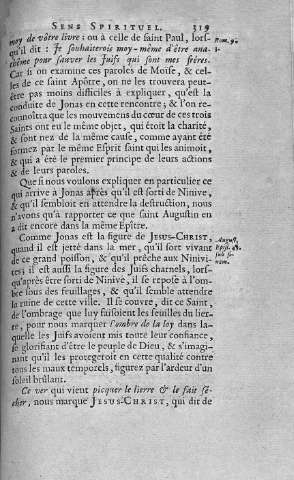 SENS SPIRITUEL. 319
moy de vôtre livre: ou à celle de saint Paul, lors- Rom. 9.
qu'il dit: Je souhaiterois moy-même d'être ana-
thême pour sauver les Juifs qui sont mes freres.
Car si on examine ces paroles de Moïse, & cel-
les de ce saint Apôtre, on ne les trouvera peut-
être pas moins difficiles à expliquer, qu'est la
conduite de Jonas en cette rencontre; & l'on re-
connoîtra que les mouvemens du cœur de ces trois
Saints ont eu le même objet, qui étoit la charité,
& sont nez de la même cause, comme ayant été
formez par le même Esprit saint qui les animoit,
& qui a été le premier principe de leurs actions
& de leurs paroles.
Que si nous voulons expliquer en particulier ce
qui arrive à Jonas aprés qu'il est sorti de Ninive,
& qu'il sembloit en attendre la destruction, nous
n'avons qu'à rapporter ce que saint Augustin en
a dit encore dans la même Epître.
Comme Jonas est la figure de JESUS-CHRIST, August.
quand il est jetté dans la mer, qu'il sort vivant Epist.
de ce grand poisson, & qu'il prêche aux Ninivi-
tes: il est aussi la figure des Juifs charnels, lors-
qu'aprés être sorti de Ninive, il se repose à l'om-
bre sous des feuillages, & qu'il semble attendre
la ruine de cette ville. Il se couvre, dit ce Saint,
de l'ombrage que luy faisoient les feuilles du lier-
re, pour nous marquer l'ombre de la loy dans la-
quelle les Juifs avoient mis toute leur confiance,
se glorifiant d'être le peuple de Dieu, & s'imagi-
nant qu'il les protegeroit en cette qualité contre
tous les maux temporels, figurez par l'ardeur d'un
soleil brûlant.
Ce ver qui vient picquer le lierre & le fait sé-
cher, nous marque JESUS-CHRIST, qui dit de